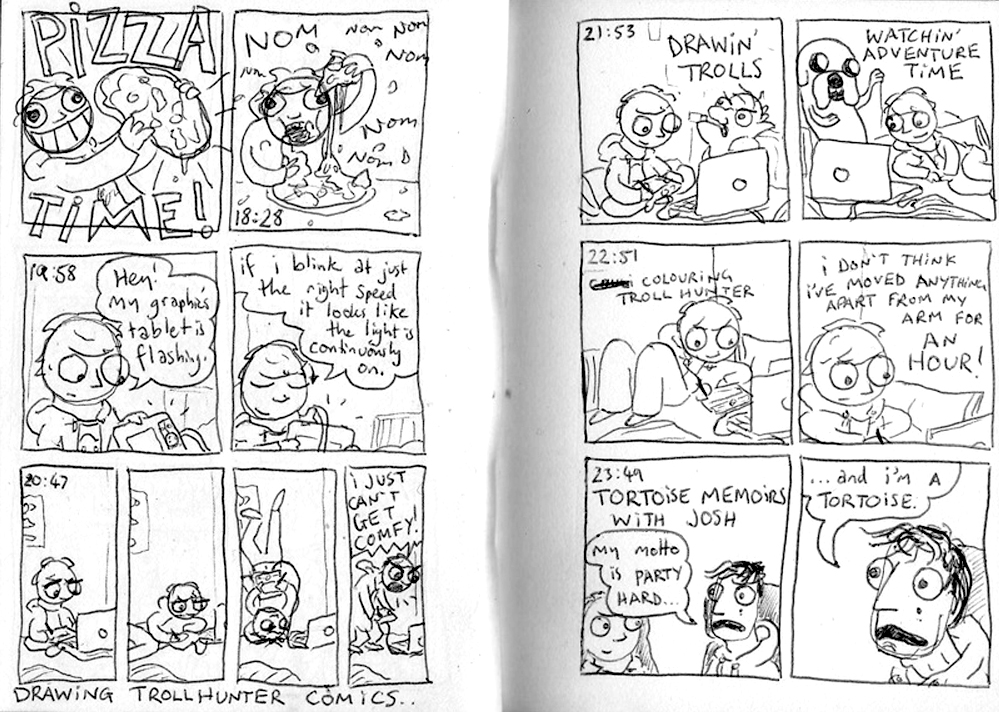 PIZZA
TIME!
NOM
NOM NOM
NOM
NOM
NOM
NOM
18:28
19:58
Hey!
my graphics
tablet is
flashing.
if i blink at just
the right speed
it looks like
the light is
continuously
on.
20:47
i JUST
CAN'T
GET
COMFY!
DRAWING TROLLHUNTER COMICS..
21:53
DRAWIN'
TROLLS
WATCHIN'
ADVENTURE
TIME
22:51
COLOURING
TROLL HUNTER
i DON'T THINK
i'VE MOVED ANYTHING
APART FROM MY
ARM FOR
AN
HOUR!
23:49
TORTOISE MEMOIRS
WITH JOSH
my motto
is PARTY
HARD...
...and i'm A
TORTOISE.